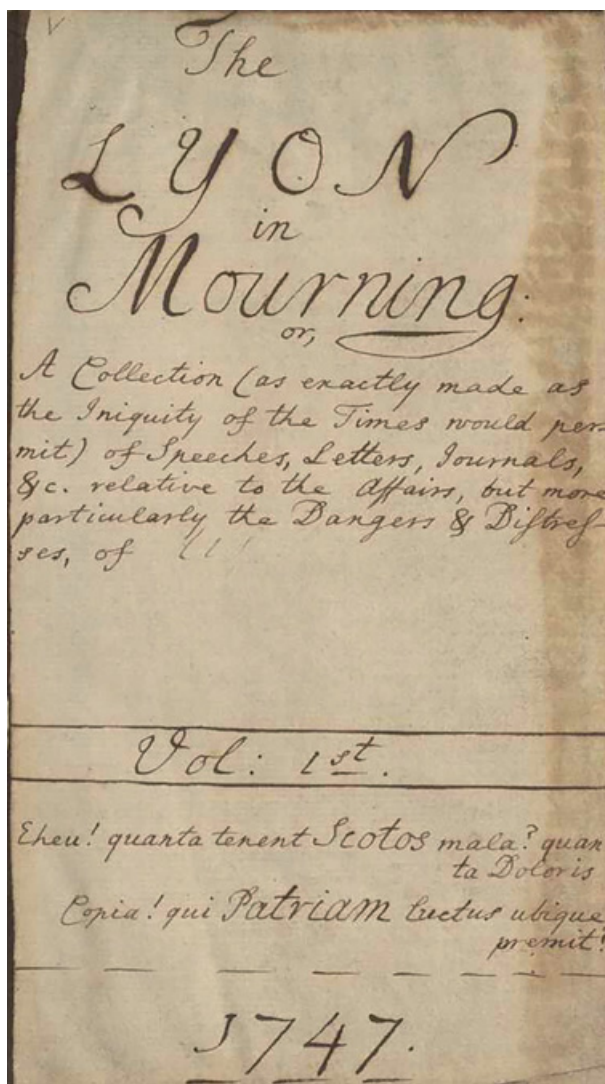 The
LYON
in
Mourning:
or,
A Collection (as exactly made as
the Iniquity of the Times would per
mit) of Speeches, Letters, Journals,
&c. relative to the Affairs, but more
particularly the Dangers & Diſtreſ-
ses, of
Vol: 1st.
Eheu! quanta tenent Scotos mala? quan
ta Doloris
Copia! qui Patriam luctus ubique
premit!
1747.